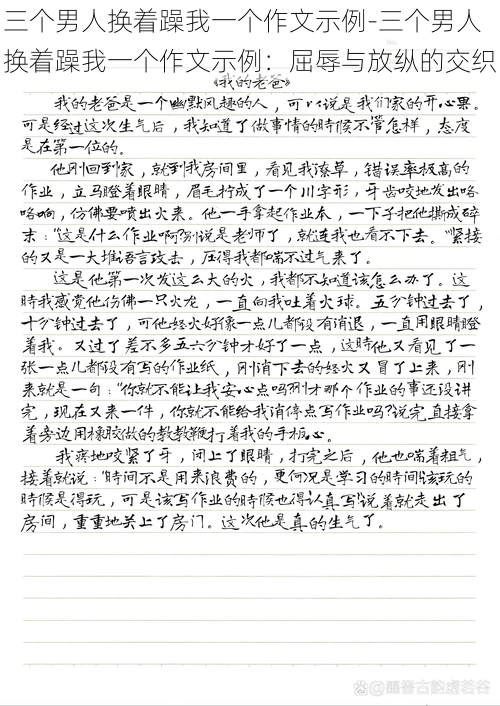 三个男人换着躁我一个作文示例-三个男人
换着躁我一个作文示例：屈辱与放纵的交织
《我的老爸》
我的老爸是一个幽默风趣的人，可以说是我们家的开心果。
可是经过这次生气后，我知道了做事情的時候不管怎样，态度
是在第一位的。
他刚回到家，就到我房间里，看见我潦草，错误率极高的
作业，立马瞪着眼睛，眉毛拧成了一个川字形，牙齿咬地发出咯
咯响，仿佛要喷出火来。他一手拿起作业本，一下子把他撕成碎
末："这是什么作业啊？别说是老师了，就连我也看不下去。"紧接
的又是一大堆语言攻击，压得我都喘不过气来了。
这是他第一次发这么大的火，我都不知道该怎么办了。这
時我感觉他仿佛一只火龙，一直向我吐着火球。五分钟过去了，
十分钟过去了，可他怒火好像一点儿都没有消退，一直用眼睛瞪
着我。又过了差不多五六分钟才好了一点，这時他又看见了一
张一点儿都没有写的作业纸，刚消下去的怒火又冒了上来，刚
来就是一句："你就不能让我安心点吗？刚才那个作业的事还没讲
完，现在又来一件，你就不能给我消停点写作业吗？"说完直接拿
着旁边用橡胶做的教教鞭打着我的手板心。
我疼地咬紧了牙，闭上了眼睛，打完之后，他也喘着粗气，
接着就说："時间不是用来浪费的，更何况是学习的時间！该玩的
時候是得玩，可是该写作业的時候也得认真写！"说着就走出了
房间，重重地关上了房门。这次他是真的生气了。